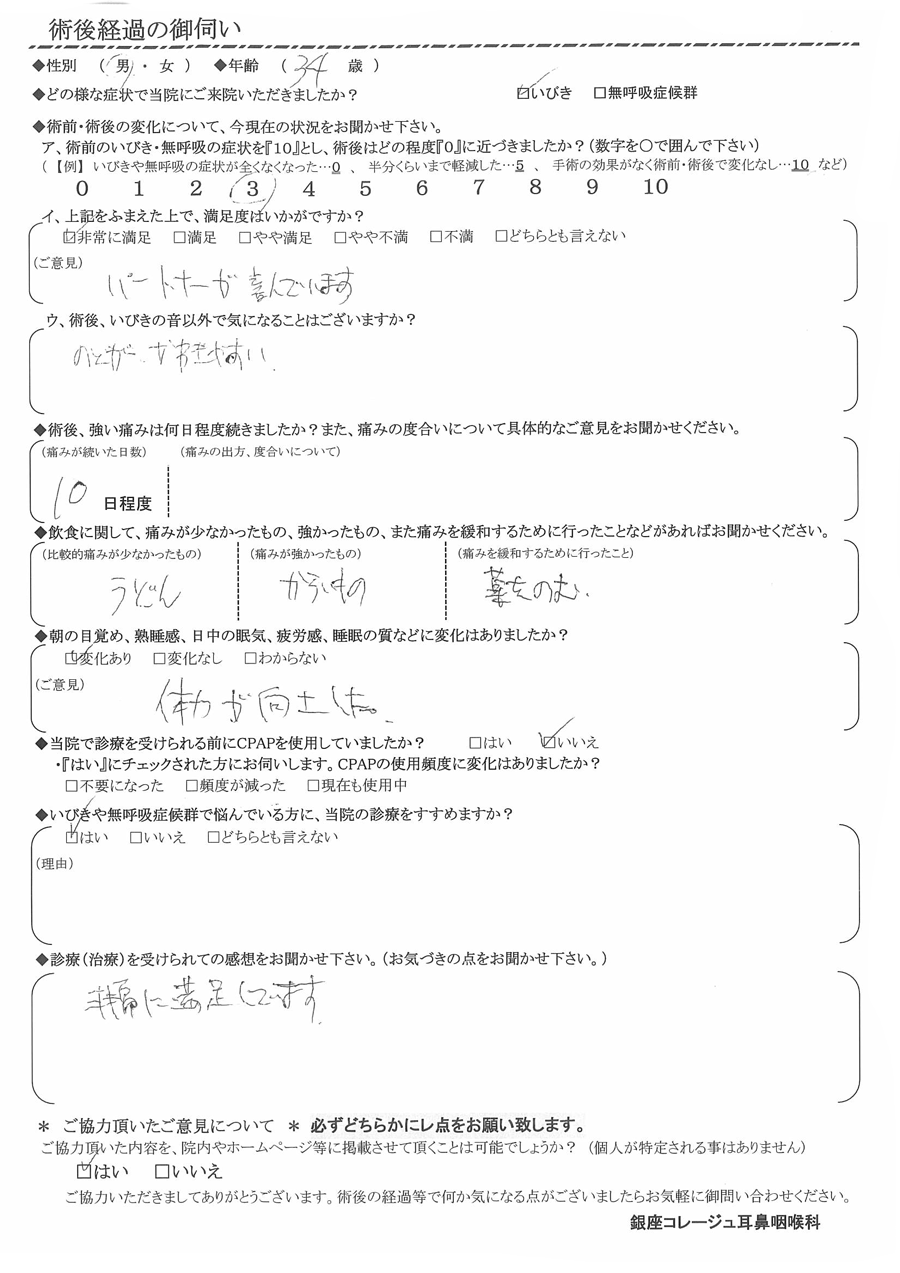 術後経過の御伺い
◆性別 （ 男 ・ 女 ） ◆年齢 （ 34 歳 ）
◆どの様な症状で当院にご来院いただきましたか？ ☑いびき □無呼吸症候群
◆術前・術後の変化について、今現在の状況をお聞かせ下さい。
ア、術前のいびき・無呼吸の症状を『10』とし、術後はどの程度『0』に近づきましたか？（数字を〇で囲んで下さい）
（ 【例】 いびきや無呼吸の症状が全くなくなった…0 、 半分くらいまで軽減した…5 、 手術の効果がなく術前・術後で変化なし…10 など）
0 1 2 3 4 5 6 7 8 9 10
イ、上記をふまえた上で、満足度はいかがですか？
☑非常に満足 □満足 □やや満足 □やや不満 □不満 □どちらとも言えない
（ご意見）
パートナーが喜んでいます
ウ、術後、いびきの音以外で気になることはございますか？
のどが、かわきやすい.
◆術後、強い痛みは何日程度続きましたか？また、痛みの度合いについて具体的なご意見をお聞かせください。
（痛みが続いた日数） （痛みの出方、度合いについて）
10 日程度
◆飲食に関して、痛みが少なかったもの、強かったもの、また痛みを緩和するために行ったことなどがあればお聞かせください。
（比較的痛みが少なかったもの） （痛みが強かったもの） （痛みを緩和するために行ったこと）
うどん からいもの 薬をのむ.
◆朝の目覚め、熟睡感、日中の眠気、疲労感、睡眠の質などに変化はありましたか？
☑変化あり □変化なし □わからない
（ご意見）
体力が向上した。
◆当院で診療を受けられる前にCPAPを使用していましたか？ □はい ☑いいえ
・『はい』にチェックされた方にお伺いします。CPAPの使用頻度に変化はありましたか？
□不要になった □頻度が減った □現在も使用中
◆いびきや無呼吸症候群で悩んでいる方に、当院の診療をすすめますか？
☑はい □いいえ □どちらとも言えない
（理由）
◆診療（治療）を受けられての感想をお聞かせ下さい。（お気づきの点をお聞かせ下さい。）
非常に満足しています.
＊ ご協力頂いたご意見について ＊ 必ずどちらかにレ点をお願い致します。
ご協力頂いた内容を、院内やホームページ等に掲載させて頂くことは可能でしょうか？ （個人が特定される事はありません）
☑はい □いいえ
ご協力いただきましてありがとうございます。術後の経過等で何か気になる点がございましたらお気軽に御問い合わせください。
銀座コレージュ耳鼻咽喉科